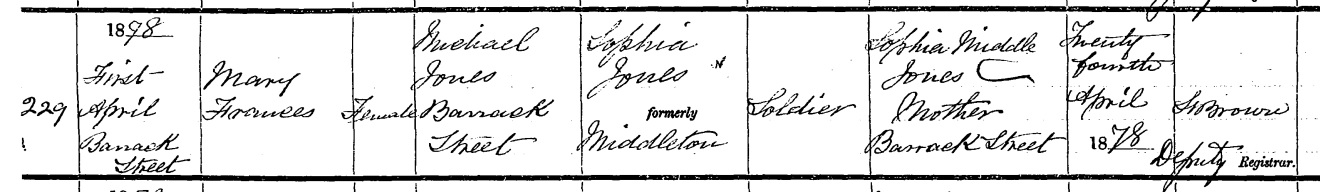 229
1878
First
April
Barrack
Street
Mary
Frances
Female
Michael
Jones
Barrack
Street
Sophia
Jones
formerly
Middleton
Soldier
Sophia Middle
Jones
Mother
Barrack Street
Twenty
fourth
April
1878
Brown
Deputy Registrar.